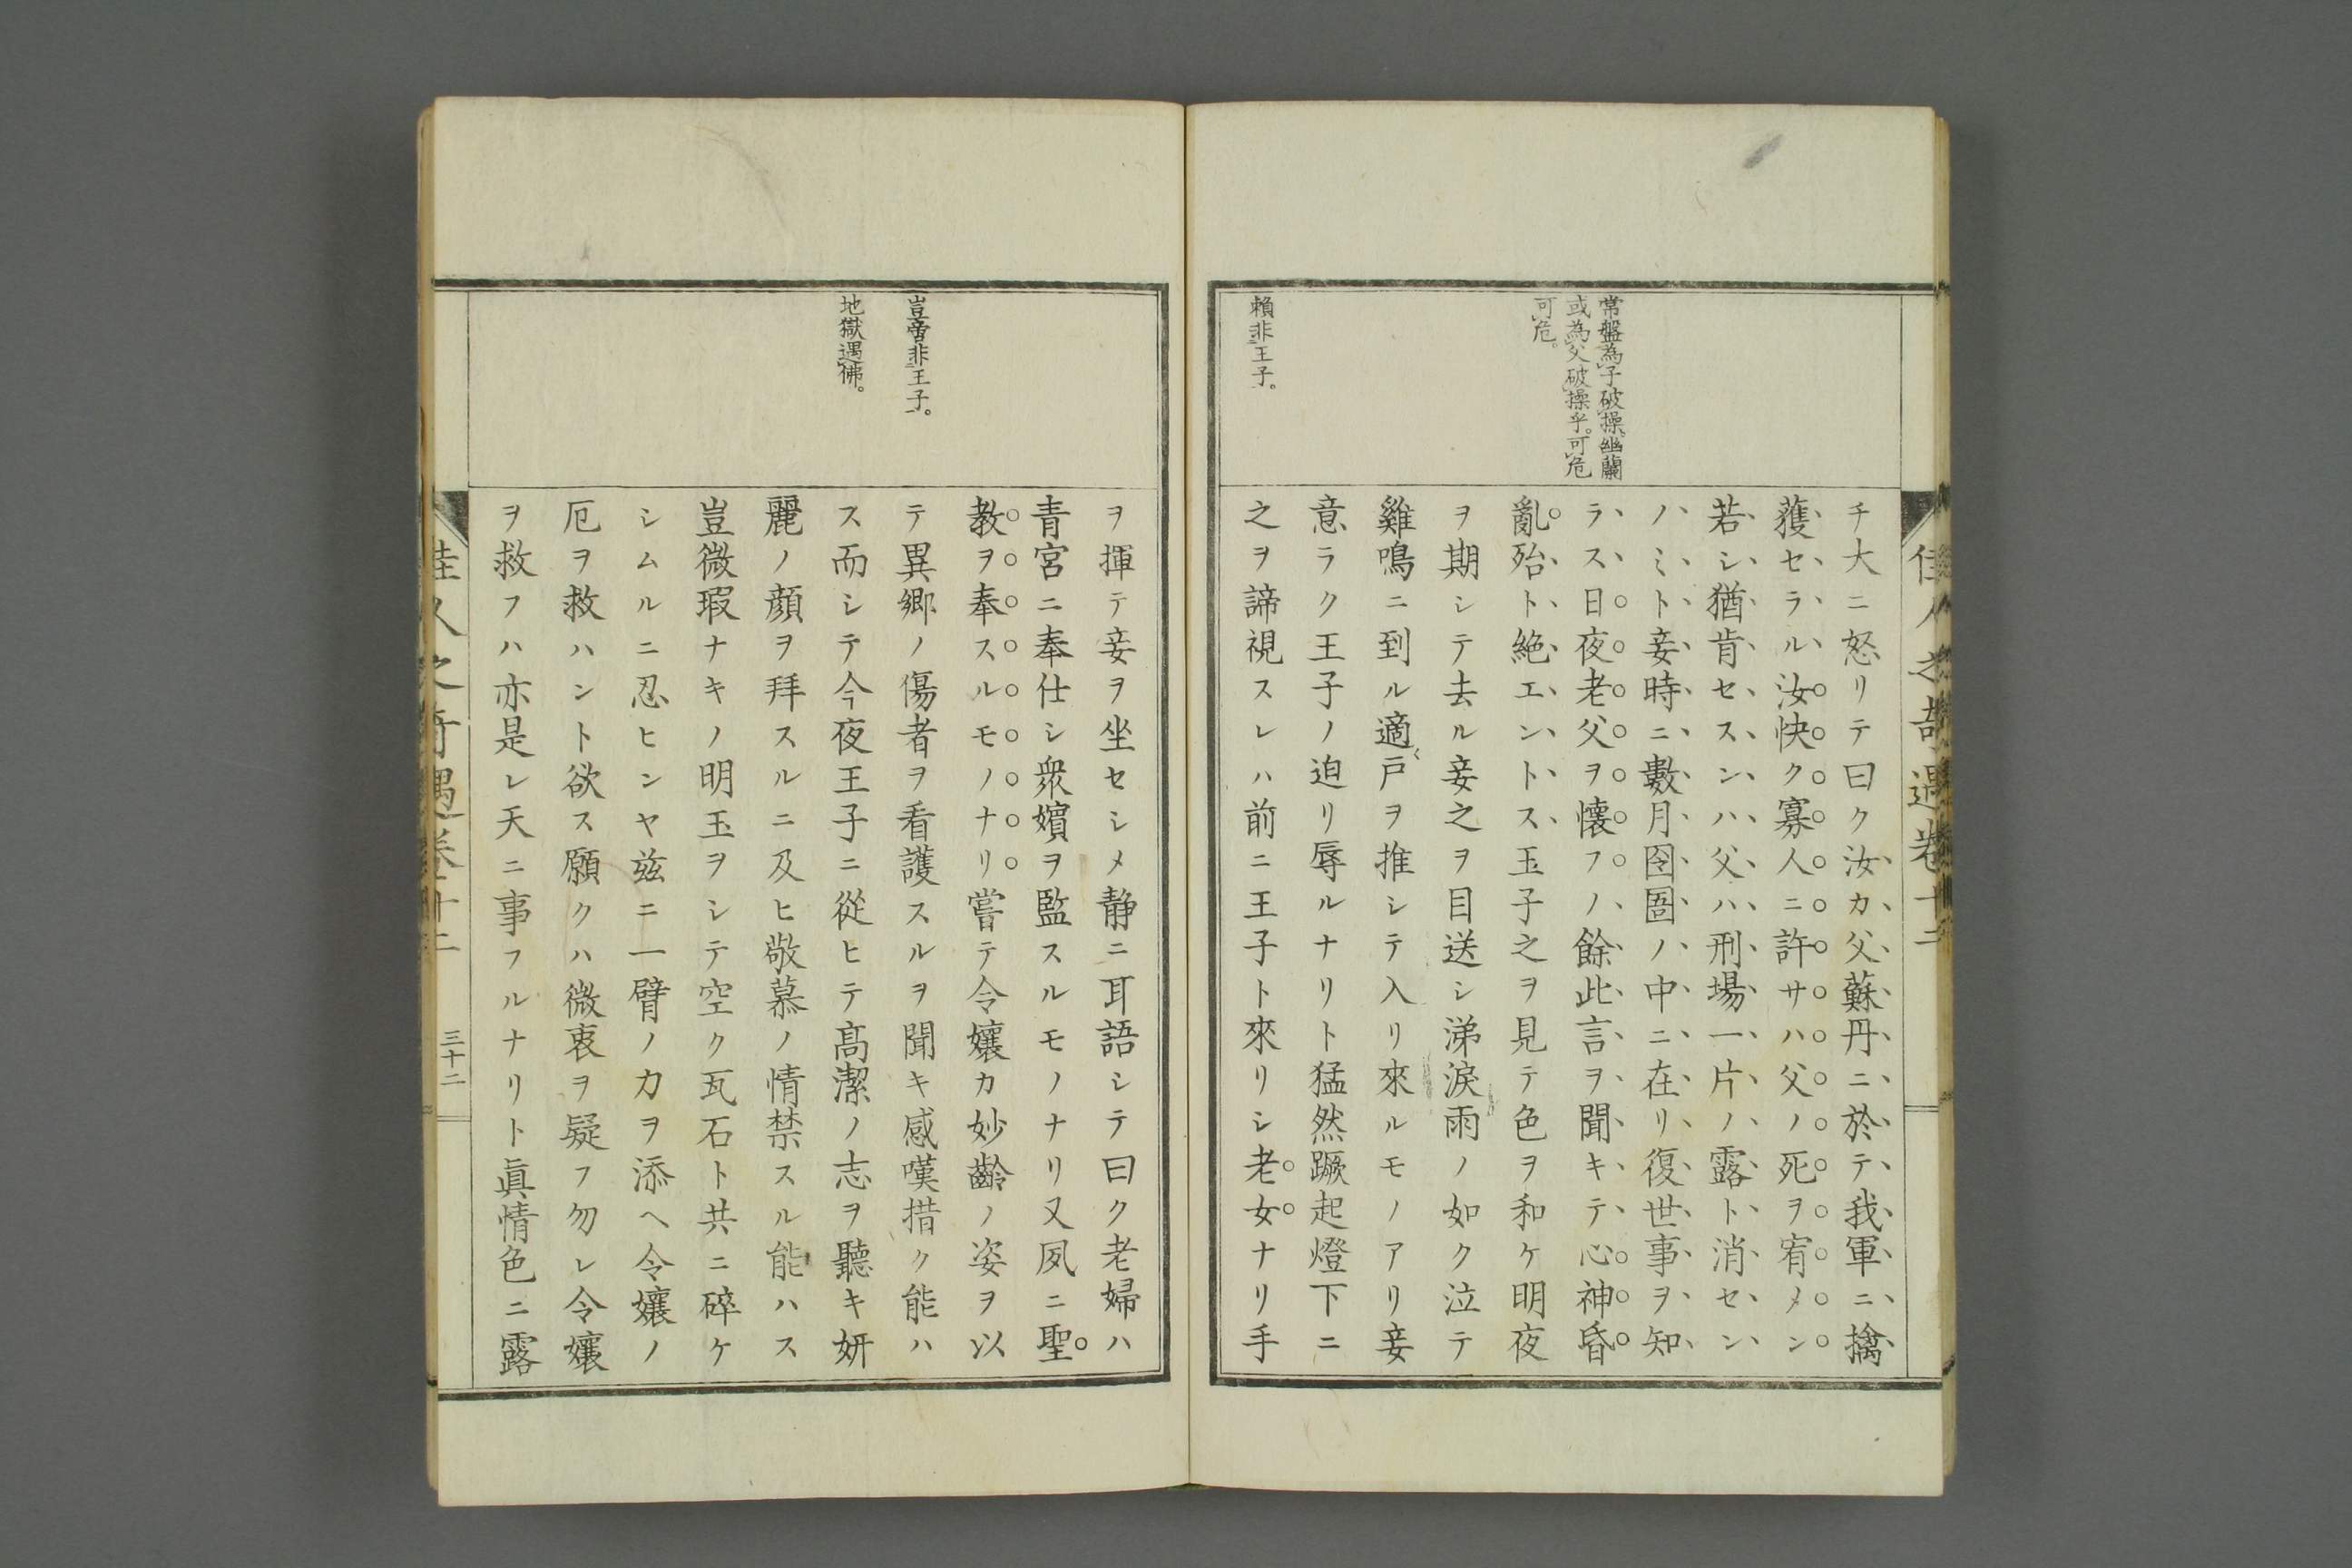 佳人之奇遇卷十二
常盤為子破操。幽蘭
或為父破操乎。可危
可危。
賴非王子。
チ大ニ怒リテ曰ク汝カ父蘇丹ニ於テ我軍ニ擒
獲セラル汝快ク寡人ニ許サハ父ノ死ヲ宥メン
若シ猶肯セスンハ父ハ刑場一片ノ露ト消セン
ノミト妾時ニ數月囹圄ノ中ニ在リ復世事ヲ知
ラス日夜老父ヲ懐フノ餘此言ヲ聞キテ心神昏
亂殆ト絶エントス王子之ヲ見テ色ヲ和ケ明夜
ヲ期シテ去ル妾之ヲ目送シ涕涙雨ノ如ク泣テ
雞鳴ニ到ル適〻戸ヲ推シテ入リ來ルモノアリ妾
意ラク王子ノ迫リ辱ルナリト猛然蹶起燈下ニ
之ヲ諦視スレハ前ニ王子ト來リシ老女ナリ手
豈啻非王子。
地獄遇佛。
ヲ揮テ妾ヲ坐セシメ静ニ耳語シテ曰ク老婦ハ
青宮ニ奉仕シ衆嬪ヲ監スルモノナリ又夙ニ聖
教ヲ奉スルモノナリ嘗テ令孃カ妙齡ノ姿ヲ以
テ異郷ノ傷者ヲ看護スルヲ聞キ感嘆措ク能ハ
ス而シテ今夜王子ニ從ヒテ髙潔ノ志ヲ聽キ妍
麗ノ顔ヲ拜スルニ及ヒ敬慕ノ情禁スル能ハス
豈微瑕ナキノ明玉ヲシテ空ク瓦石ト共ニ碎ケ
シムルニ忍ヒンヤ兹ニ一臂ノ力ヲ添ヘ令孃ノ
厄ヲ救ハント欲ス願クハ微衷ヲ疑フ勿レ令孃
ヲ救フハ亦是レ天ニ事フルナリト眞情色ニ露
佳人之奇遇卷十二
三十二